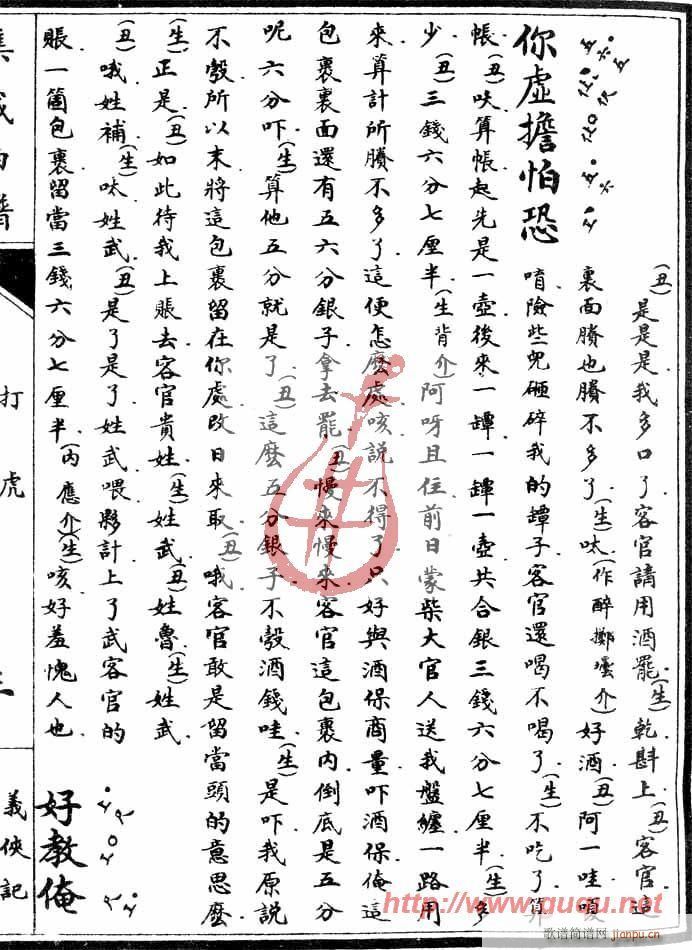 你虛擔怕恐
(丑)是是是我多口了客官請用酒罷(生)乾斟上(丑)客官這
裏面賸也賸不多了(生)呔(作醉擲罎介)好酒(丑)阿一哇嗄
唷險些兒砸碎我的罈子客官還喝不喝了(生)不吃了算
帳(丑)呔算帳起先是一壺後來一罈一罈一壺共合銀三錢六分七厘半(生)多
少(丑)三錢六分七厘半(生背介)阿呀且住前日蒙柴大官人送我盤纏一路用
來算計所賸不多了這便怎麼處咳說不得了只好與酒保商量吓酒保俺這
包裹裏面還有五六分銀子拿去罷(丑)慢來慢來客官這包裹內倒底是五分
呢六分吓(生)算他五分就是了(丑)這麼五分銀子不彀酒錢哇(生)是吓我原說
不彀所以末將這包裹留在你處改日來取(丑)哦客官敢是留當頭的意思麼
(生)正是(丑)如此待我上賬去客官貴姓(生)姓武(丑)姓魯(生)姓武
(丑)哦姓補(生)呔姓武(丑)是了是了姓武喂夥計上了武客官的
賬一箇包裹留當三錢六分七厘半(內應介)(生)咳好羞愧人也
好教俺
集成曲譜
打虎
義俠記
http://www.ququ.net
歌谱简谱网
jianpu.cn